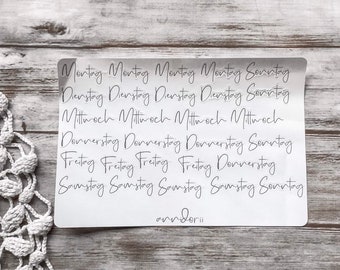 Montag Montag Montag Montag Sonntag
Dienstag Dienstag Dienstag Dienstag Sonntag
Mittwoch Mittwoch Mittwoch Mittwoch
Donnerstag Donnerstag Donnerstag Sonntag
Freitag Freitag Freitag Freitag Donnerstag
Samstag Samstag Samstag Samstag Sonntag
anndorii